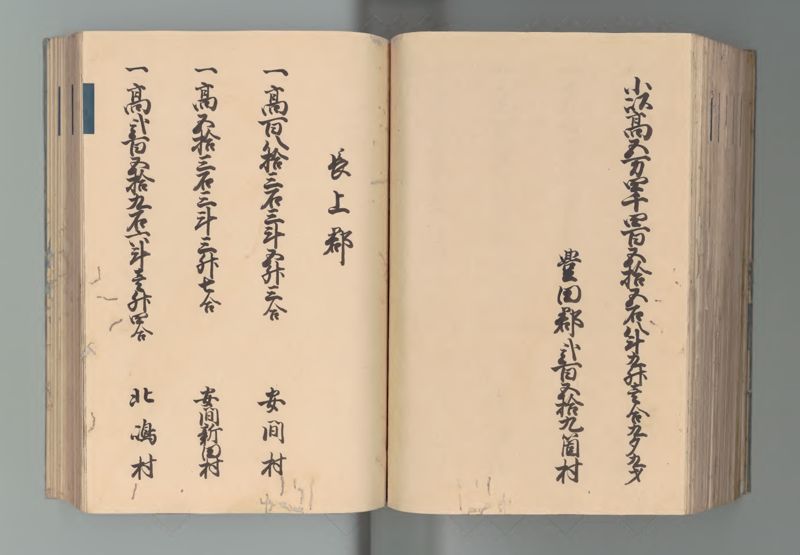 小以高五万四千四百五拾五石八斗九升壱合九夕九才
豊田郡弐百五拾九箇村
長上郡
一高百八拾三石三斗五升三合 安間村
一高五拾三石三斗三升七合 安間新田村
一高弐百五拾九石六斗壱升四合 北嶋村